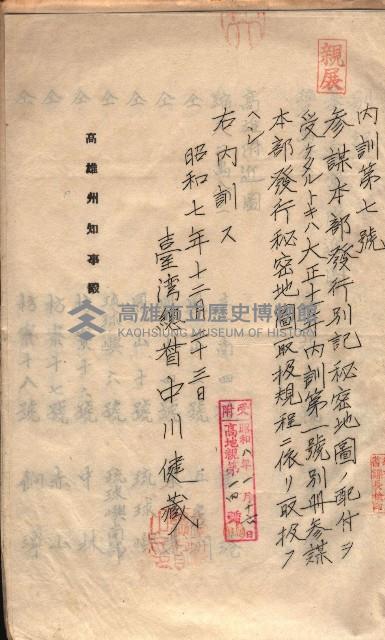 親展
内訓第七號
參謀本部發行別記秘密地圖ノ配付ヲ
受ケタルトキハ大正十五年内訓第一號別冊參謀
本部發行秘密地圖取扱規程ニ依リ取扱フ
ヘシ
右内訓ス
昭和七年十二月二十三日
臺湾總督中川健藏
高雄州知事殿
受附
昭和八年一月十六日
高地親第一四號
高雄市立歷史博物館
KAOHSIUNG MUSEUM OF HISTORY